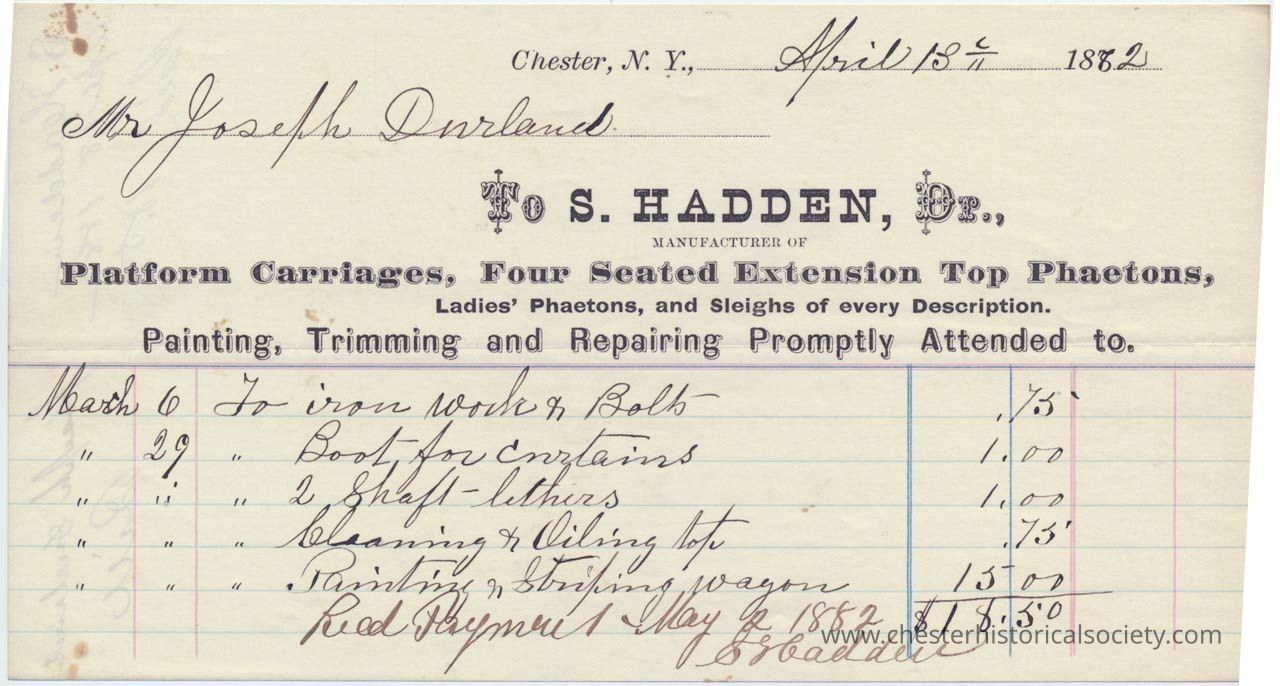 Chester, N. Y., April 13th 1882
Mr Joseph Durland
To S. HADDEN, Dr.,
MANUFACTURER OF
Platform Carriages, Four Seated Extension Top Phaetons,
Ladies' Phaetons, and Sleighs of every Description.
Painting, Trimming and Repairing Promptly Attended to.
March 6 To iron work & Bolts .75
" 29 " Boot for curtains 1.00
" " " 2 Shaft-lethers 1.00
" " " Cleaning & Oiling top .75
" " " Painting & Striping wagon 15 00
Recd Payment May 2 1882 $18.50
www.chesterhistoricalsociety.com
S Hadden